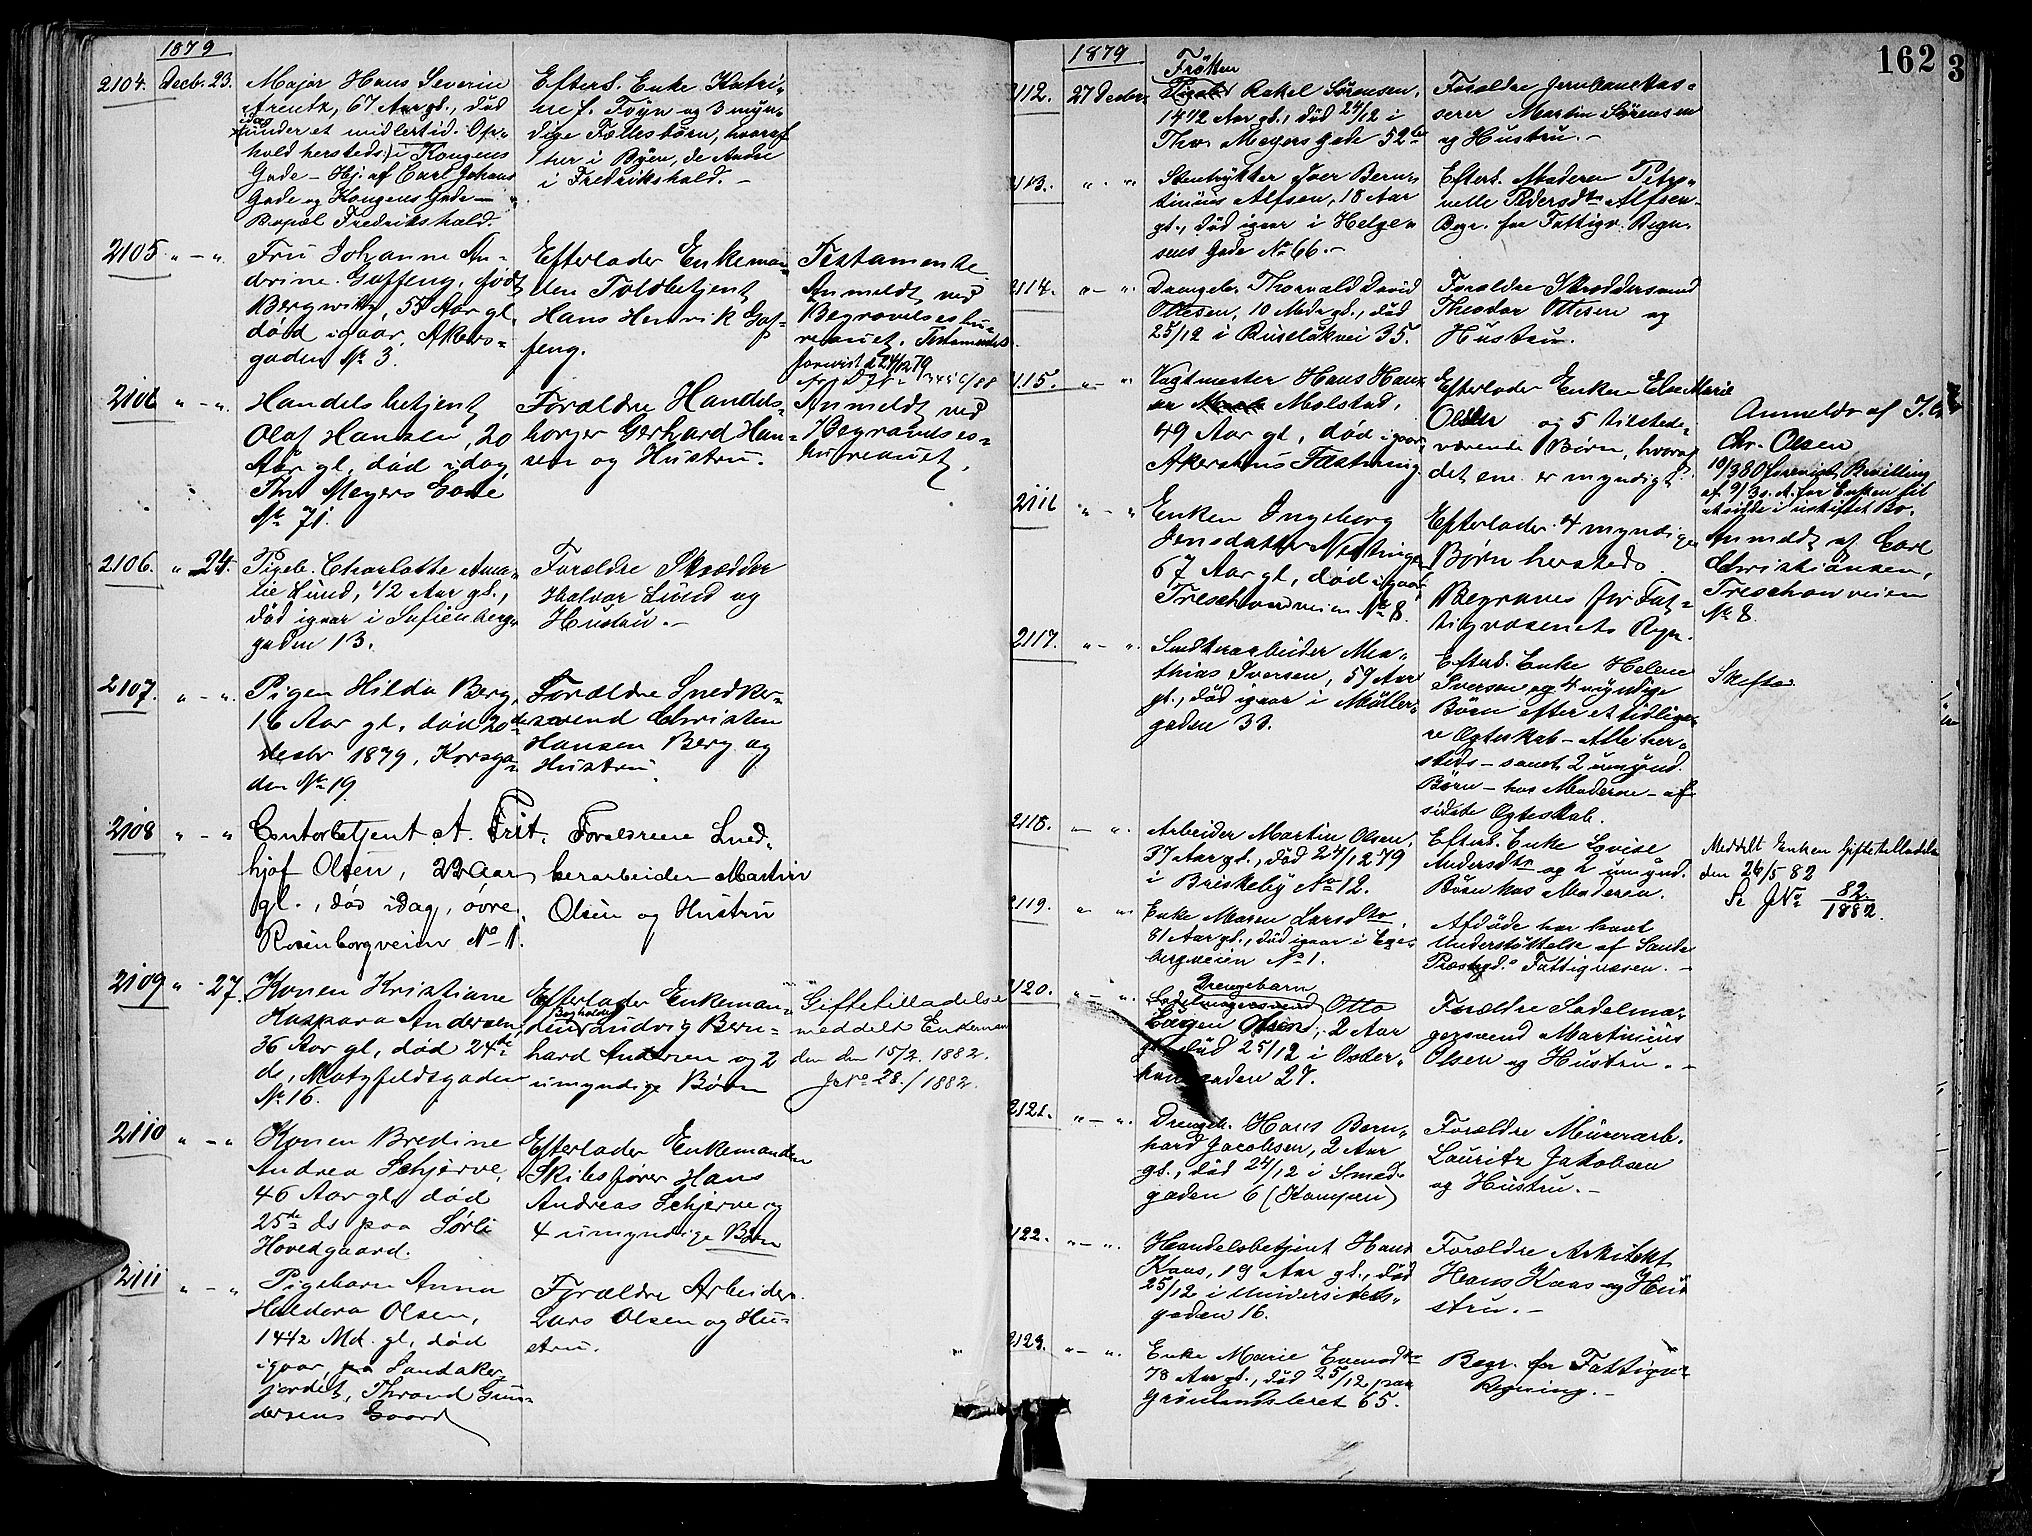 1879
2104. Decbr. 23. Major Hans Severin
Arentz, 67 Aar gl., død
idag
under et midlertid. Op-
hold hersteds i Kongens
Gade - Hj. af Carl Johans
Gade og Kongens Gade -
Bopæl Fredrikshald.
Efterl. Enke Katri-
ne f. Føyn og 3 myn-
dige Fællesbørn, hvoraf
1 her i Byen, de Andre
i Fredrikshald. -
2105 " - " Fru Johanne An-
drine Gaffeng, født
55 Aar gl.
død igaar, Akers-
gaden No 3.
Efterlader Enkeman-
den Toldbetjent
Hans Henrik Gaf-
feng.
Testamente
Anmeldt ved
Begravelsesbu-
reauet. Testamentet
forevist d 24/12 79
" - " Handelsbetjent
Olaf Hansen, 20
Aar gl, død idag,
Thv Meyers Gade
No 71.
Forældre Handels-
borger Gerhard Han-
sen og Hustru.
Anmeldt ved
Begravelses-
bureauet.
2106. " 24. Pigeb. Charlotte Ama-
lie Lund, 1/2 Aar gl.,
død igaar i Sofienberg-
gaden 13.
Forældre Skrædder
Halvor Lund og
Hustru. -
2107. " - " Pigen Hilda Berg,
16 Aar gl, død 20de
decbr 1879, Korsga-
den No 19
Forældre Snedker-
svend Christen
Hansen Berg og
Hustru.
2108 " - " Contorbetjent A. Frit-
hjof Olsen, 23 Aar
gl., død idag, øvre
Rosenborgveien No 1.
Forældrene Sned-
kerarbeider Martin
Olsen og Hustru
2109 " - 27. Konen Kristiane
Kaspara Andersen
36 Aar gl, død 24de
ds, Motzfeldsgaden
No 16.
Efterlader Enkeman-
Bogholder
den Ludvig Bern-
hard Andersen og 2
umyndige Børn
Giftetilladelse
meddelt Enkeman
den den 15/2. 1882.
J. No 28./1882.
2110 " - " Konen Bredine
Andrea Schjerve,
46 Aar gl, død
25de ds paa Sørli
Hovedgaard.
Efterlader Enkemanden
Skibsfører Hans
Andreas Schjerve og
4 umyndige Børn
2111 " - " Pigebarn Anna
Heldora Olsen,
1 4/12 Md. gl, død
igaar, på Sandaker-
jordet, Thrond Gun-
dersens Gaard
Forældre Arbeider
Lars Olsen og Hu-
stru.
162
3
1879
2112. 27 Decbr. Frøken
Rakel Sørensen,
14 1/2 Aar gl., død 24/12 i
Thv. Meyers gade 52
Forældre Jernbanekas-
serer Martin Sørensen
og Hustru. -
2113. " - " Stentrykker Iver Bern-
tinius Alfsen, 18 Aar
gl., død igaar i Helge-
sens Gade No 66. -
Efterl. Moderen Petro-
nelle Pedersdtr Alfsen
Begr. for Fattigv. Regn.
2114. " - " Drengeb. Thorvald David
Ottesen, 10 Mdr gl., død
25/12 i Ruseløkvei 35.
Forældre Skræddersvend
Theodor Ottesen og
Hustru.
2115. " - " Vagtmester Hans Han-
sen Molstad,
49 Aar gl, død igaar,
Akershus Fæstning
Efterlader Enken Else Marie
Olsen og 5 tilstede-
værende Børn, hvoraf
det ene er myndigt
Anmeldt af
Chr. Olsen
10/3 80 forevist Bevilling
af 9/3 s. A. for Enken til
at sidde i uskiftet Bo.
2116 " - " Enken Ingeborg
Jensdatter
67 Aar gl, død igaar
Treschowsveien No 8.
Efterlader 4 myndige
Børn hersteds.
Begraves for Fat-
tigvæsenets Regn.
Anmeldt af Carl
Christiansen,
Treschowveien
No 8
2117. " - " Snedkerarbeider Ma-
thias Iversen, 59 Aar
gl., død igaar i Møller-
gaden 33.
Efterl. Enke Helene
Iversen og 4 myndige
Børn efter et tidlige-
re Ægteskab - Alle her-
steds - samt 2 umynd.
Børn - hos Moderen - af
sidste Ægteskab.
Skiftes
2118. " - " Arbeider Martin Olsen,
37 Aar gl., død 24/12 79
i Briskeby No 12.
Efterl. Enke Lovise
Andersdtr og 2 umynd.
Børn hos Moderen.
Meddelt Enken Giftetilladelse
den 26/5 82
Se J No 82/1882.
2119. " " Enke Maren Larsdtr,
81 Aar gl., død igaar i Ege-
bergveien No 1.
Afdøde har havt
Understøttelse af Sande
Præstegd.s Fattigvæsen. -
2120. " - " Drengebarn
Sadelmagersvend Otto
Eugen Olsen, 2 Aar
gl., død 25/12 i Oster-
hausgaden 27.
Forældre Sadelma-
gersvend Martinius
Olsen og Hustru. -
2121. " - " Drengeb. Hans Bern-
hard Jacobsen, 2 Aar
gl., død 24/12 i Smed-
gaden 6 (Kampen)
Forældre Murerarb.
Lauritz Jakobsen
og Hustru. -
2122. " - " Handelsbetjent Hans
Kaas, 19 Aar gl., død
25/12 i Universitets-
gaden 16.
Forældre Arkitekt
Hans Kaas og Hu-
stru. -
2123. " - " Enke Marie Evensdtr
78 Aar gl., død 25/12 paa
Grønlandsleret 65.
Begr. for Fattigv.
Regning. -